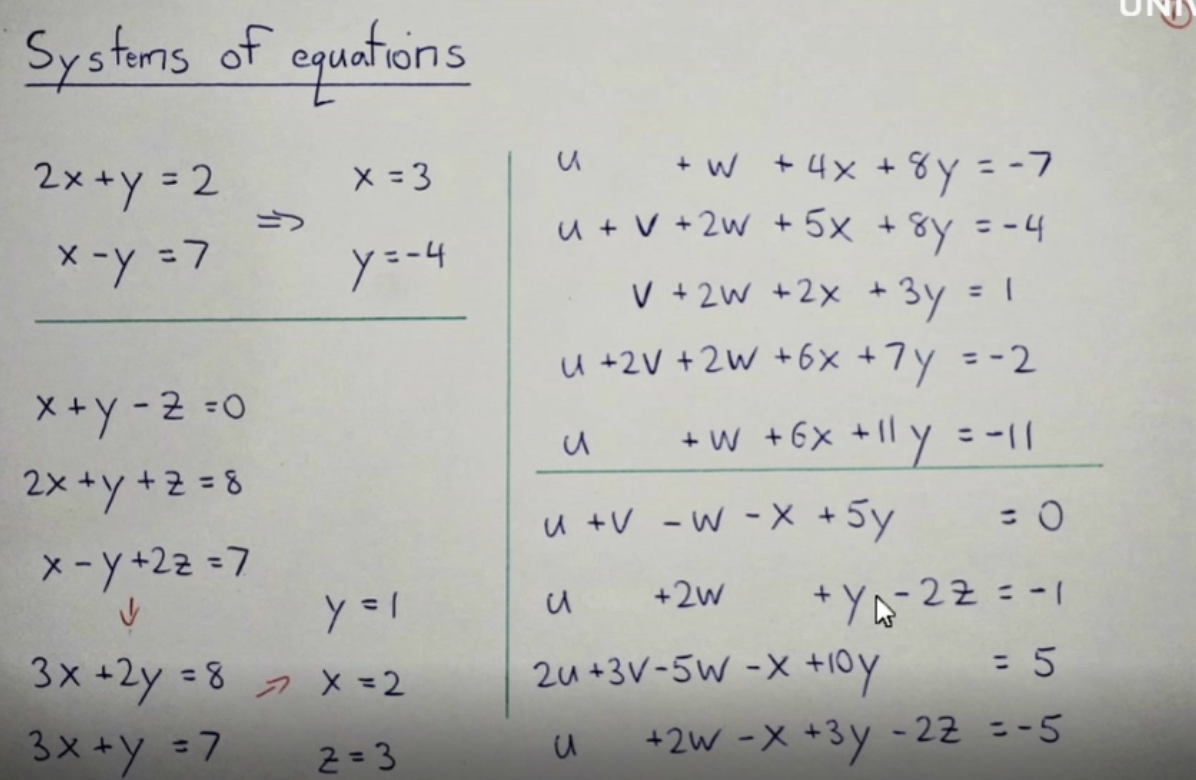 UNIV
Systems of equations
2x + y = 2
x - y = 7
⇒
x = 3
y = -4
x + y - z = 0
2x + y + z = 8
x - y + 2z = 7
↓
3x + 2y = 8
3x + y = 7
→
y = 1
x = 2
z = 3
u + w + 4x + 8y = -7
u + v + 2w + 5x + 8y = -4
v + 2w + 2x + 3y = 1
u + 2v + 2w + 6x + 7y = -2
u + w + 6x + 11y = -11
u + v - w - x + 5y = 0
u + 2w + y - 2z = -1
2u + 3v - 5w - x + 10y = 5
u + 2w - x + 3y - 2z = -5